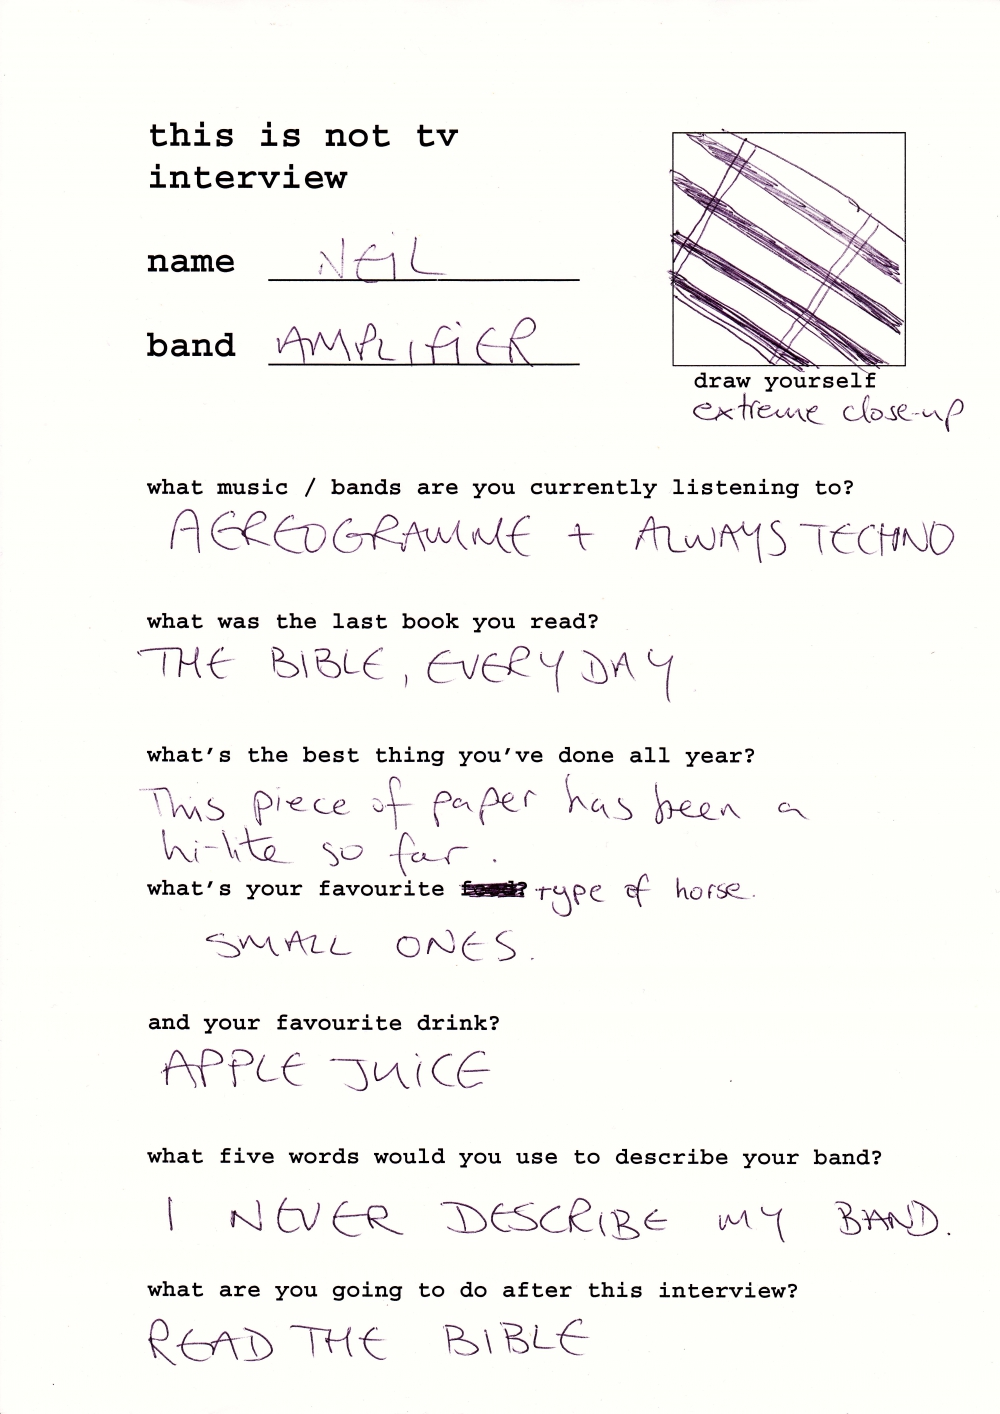 this is not tv
interview
name NEIL
band AMPLIFIER
draw yourself
extreme close-up
what music / bands are you currently listening to?
AEREOGRAMME + ALWAYS TECHNO
what was the last book you read?
THE BIBLE, EVERY DAY
what's the best thing you've done all year?
This piece of paper has been a
hi-lite so far.
what's your favourite food? type of horse.
SMALL ONES.
and your favourite drink?
APPLE JUICE
what five words would you use to describe your band?
I NEVER DESCRIBE MY BAND.
what are you going to do after this interview?
READ THE BIBLE